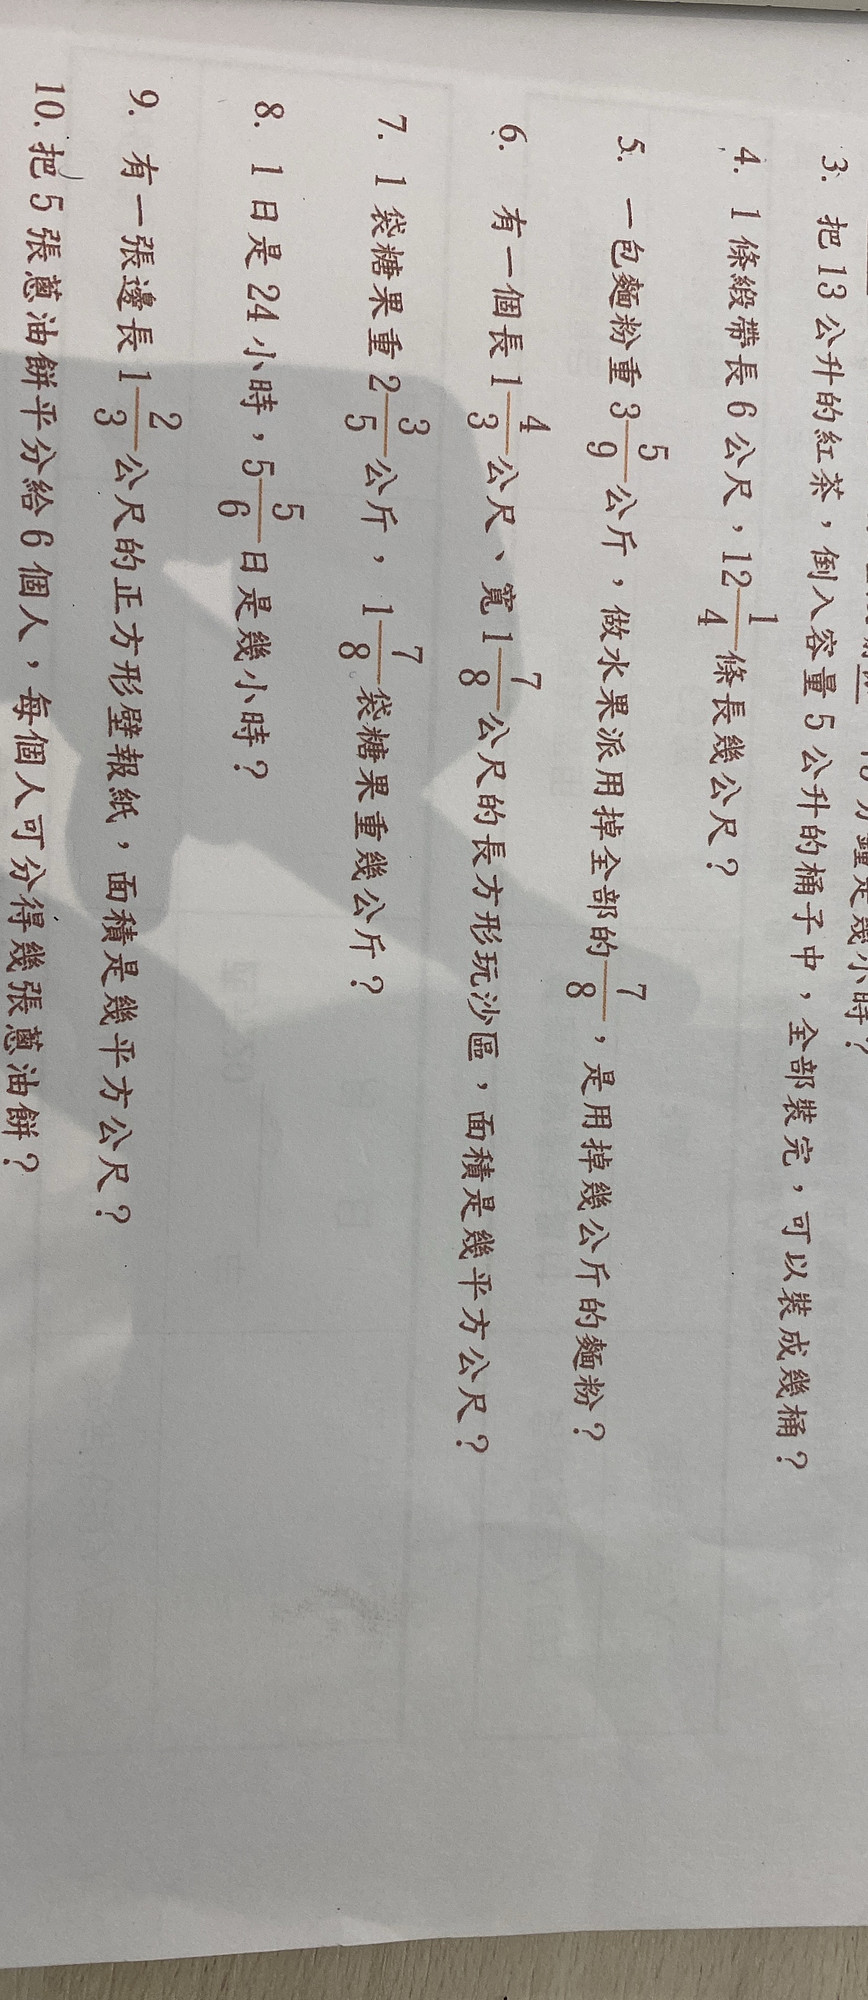 分鐘是幾小時？
3. 把13公升的紅茶，倒入容量5公升的桶子中，全部裝完，可以裝成幾桶？
4. 1條緞帶長6公尺，12 1/4 條長幾公尺？
5. 一包麵粉重 3 5/9 公斤，做水果派用掉全部的 7/8，是用掉幾公斤的麵粉？
6. 有一個長 1 4/3 公尺、寬 1 7/8 公尺的長方形玩沙區，面積是幾平方公尺？
7. 1袋糖果重 2 3/5 公斤，1 7/8 袋糖果重幾公斤？
8. 1日是24小時，5 5/6 日是幾小時？
9. 有一張邊長 1 2/3 公尺的正方形壁報紙，面積是幾平方公尺？
10. 把5張蔥油餅平分給6個人，每個人可分得幾張蔥油餅？